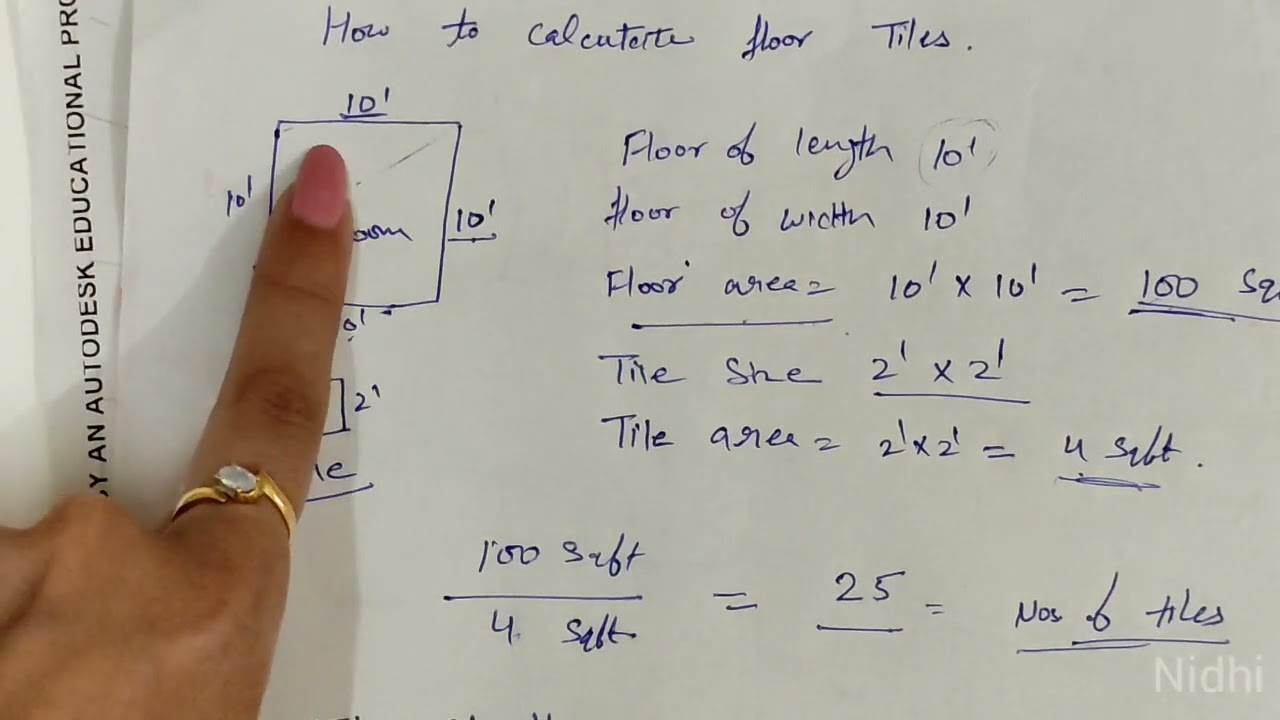 How to calculate floor Tiles.
10'
10'
10'
2'
Floor of length 10'
floor of width 10'
Floor area = 10' x 10' = 100
Tile Size 2' x 2'
Tile area = 2' x 2' = 4 Sqft.
100 Sqft
4 Sqft
= 25 = Nos of tiles
BY AN AUTODESK EDUCATIONAL
Nidhi